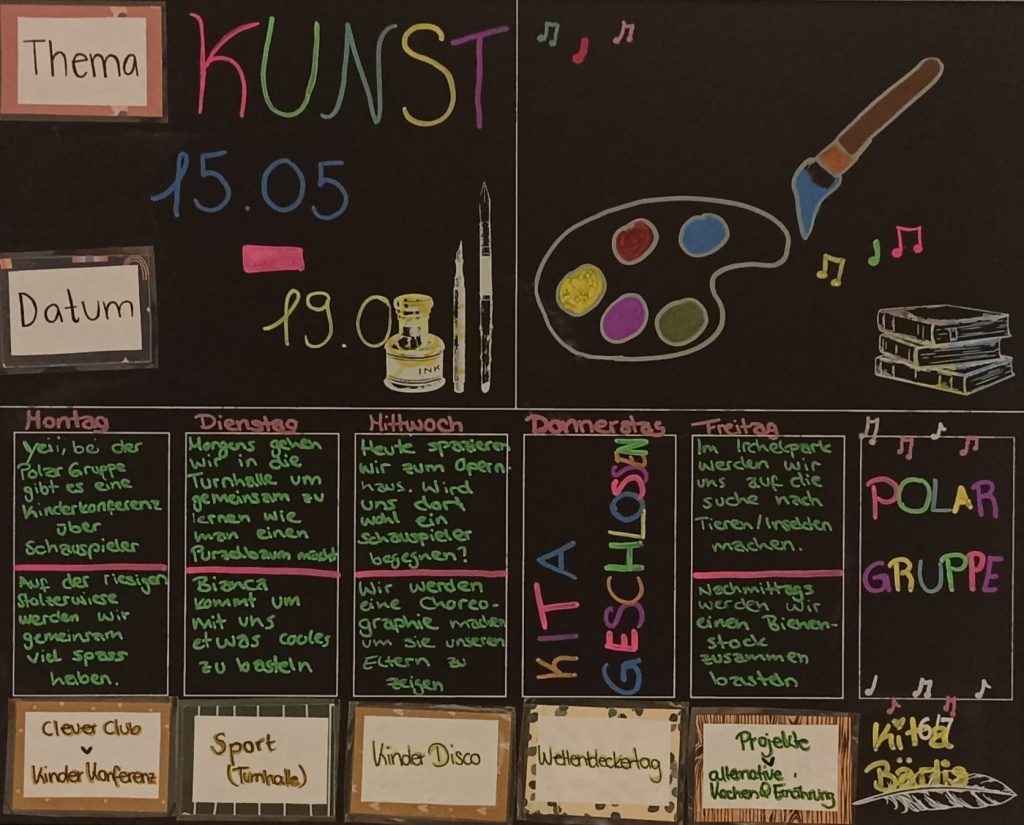 Thema
KUNST
15.05
Datum
19.0
INK
Montag
Yeii, bei der
Polar Gruppe
gibt es eine
Kinderkonferenz
über
Schauspieler
Auf der riesigen
Stolzerwiese
werden wir
gemeinsam
viel spass
haben.
Clever Club
Kinder Konferenz
Dienstag
Morgens gehen
wir in die
Turnhalle um
gemeinsam zu
lernen wie
man einen
Purzelbaum macht
Bianca
kommt um
mit uns
etwas cooles
zu basteln
Sport
(Turnhalle)
Mittwoch
Heute spazieren
wir zum Opern-
haus. Wird
uns dort
wohl ein
schauspieler
begegnen?
Wir werden
eine Choreo-
graphie machen
um sie unseren
Eltern zu
zeigen
Kinder Disco
Donnerstag
KITA
GESCHLOSSEN
Weltentdeckertag
Freitag
Im Irchelpark
werden wir
uns auf die
suche nach
Tieren/Insekten
machen.
Nachmittags
werden wir
einen Bienen-
stock
zusammen
basteln
Projekte
alternative
Kochen & Ernährung
POLAR
GRUPPE
Kita
6/7
Bärlis